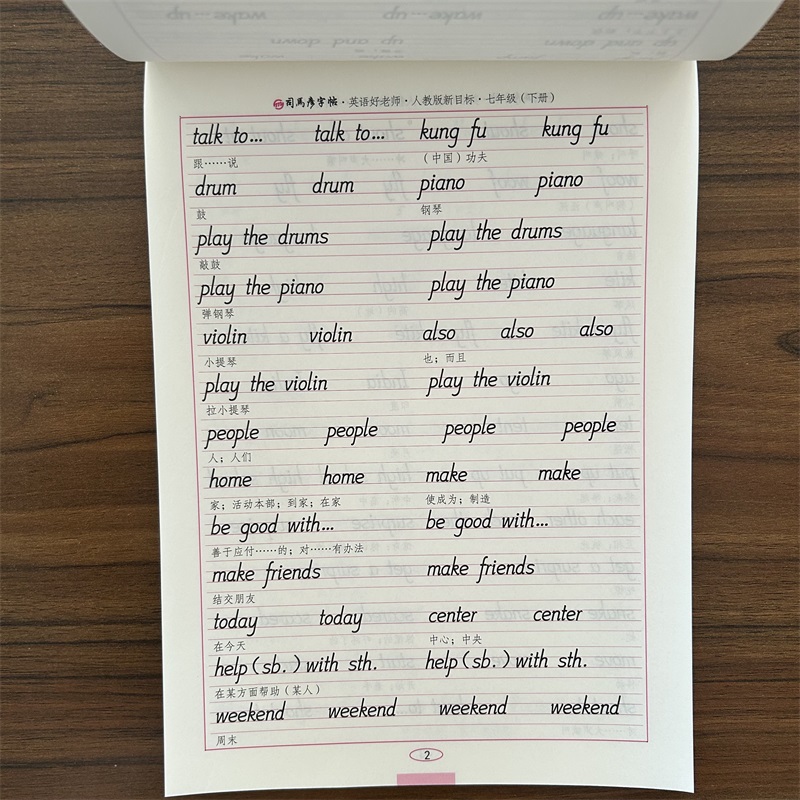 司马彦字帖·英语好老师·人教版新目标·七年级（下册）
talk to... talk to... kung fu kung fu
跟……说 （中国）功夫
drum drum piano piano
鼓 钢琴
play the drums play the drums
敲鼓
play the piano play the piano
弹钢琴
violin violin also also also
小提琴 也；而且
play the violin play the violin
拉小提琴
people people people people
人；人们
home home make make
家；活动本部；到家；在家 使成为；制造
be good with... be good with...
善于应付……的；对……有办法
make friends make friends
结交朋友
today today center center
在今天 中心；中央
help (sb.) with sth. help (sb.) with sth.
在某方面帮助（某人）
weekend weekend weekend weekend
周末
2